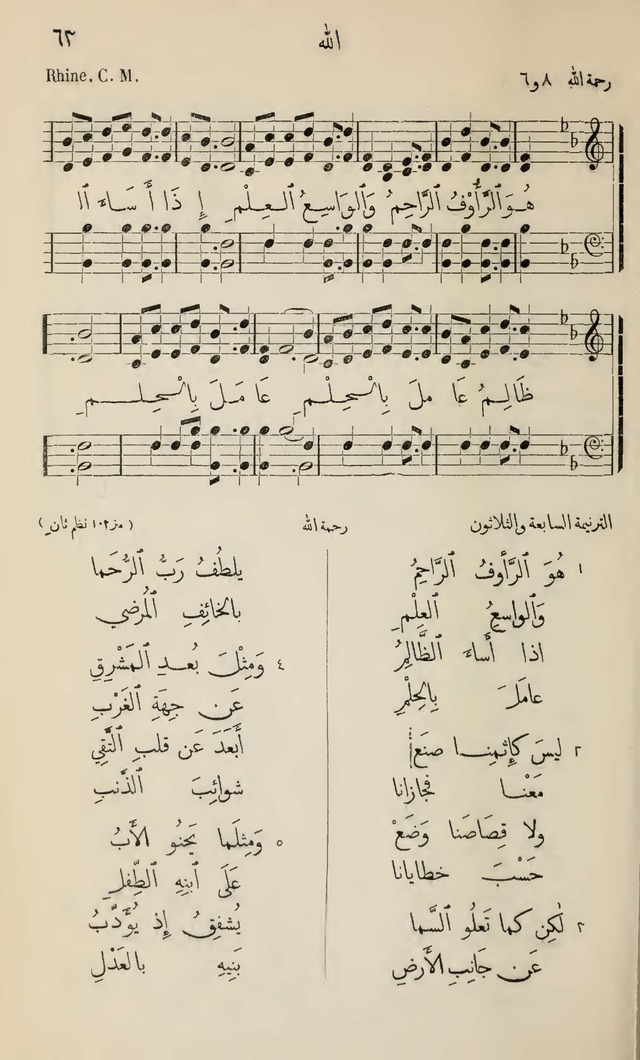 ٦٣
الله
Rhine. C. M.
رحمة الله ٨ و٦
هُوَ ٱلرَّأُوْفُ ٱلرَّاحِمُ وَٱلوَاسِعُ ٱلعِلْمِ إِ ذَا أَ سَاءَ ٱلـ
ظَالِمُ عَا مَلَ بِٱلْحِلْمِ عَا مَلَ بِٱلْحِلْمِ
الترنيمة السابعة والثلاثون
رحمة الله
(مز ١٠٢ نظم ثانٍ)
١ هُوَ ٱلرَّأوفُ ٱلرَّاحِمُ
وَٱلواسعُ ٱلعِلْمِ
اذا أَساءَ ٱلظَّالِمُ
عامَلَ بِالحِلْمِ
٢ ليسَ كَإِثمِنا صنَعْ
مَعْنا فجازانا
ولا قِصَاصَنا وَضَعْ
حَسْبَ خطايانا
٢ لٰكِن كما تَعلُو ٱلسَّما
عَن جَانِبِ الأَرضِ
يلطُفُ رَبُّ ٱلرُّحَما
بالخائِفِ ٱلمُرضي
٤ وَمِثْلَ بُعدِ ٱلمَشْرِقِ
عَن جِهَةِ ٱلغَرْبِ
أَبعَدَ عَن قلبِ ٱلتَّقِي
شوائِبَ ٱلذَّنبِ
٥ وَمِثلَما يَحنُو الأَبُ
عَلَى ٱبنِهِ ٱلطِّفلِ
يُشفِقُ إِذ يُؤَدِّبُ
بَنِيهِ بالعَدْلِ